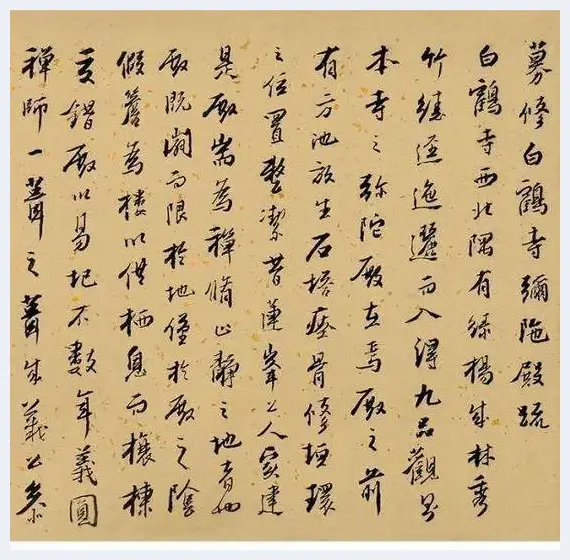 募修白鶴寺彌陁殿疏
白鶴寺西北隅有綠楊成林秀
竹繞逕迤邐而入得九品觀
本寺之弥陀殿在焉殿之前
有方池放生石塔瘞骨修垣環
之位置整潔昔蓮峯上人寔建
是殿耑為禪脩止靜之地者也
殿既闳而限於地僅於殿之陰
假簷為樓以供栖息而欀棟
交錯殿以易圮不數年義圓
禪師一葺之葺成義公參